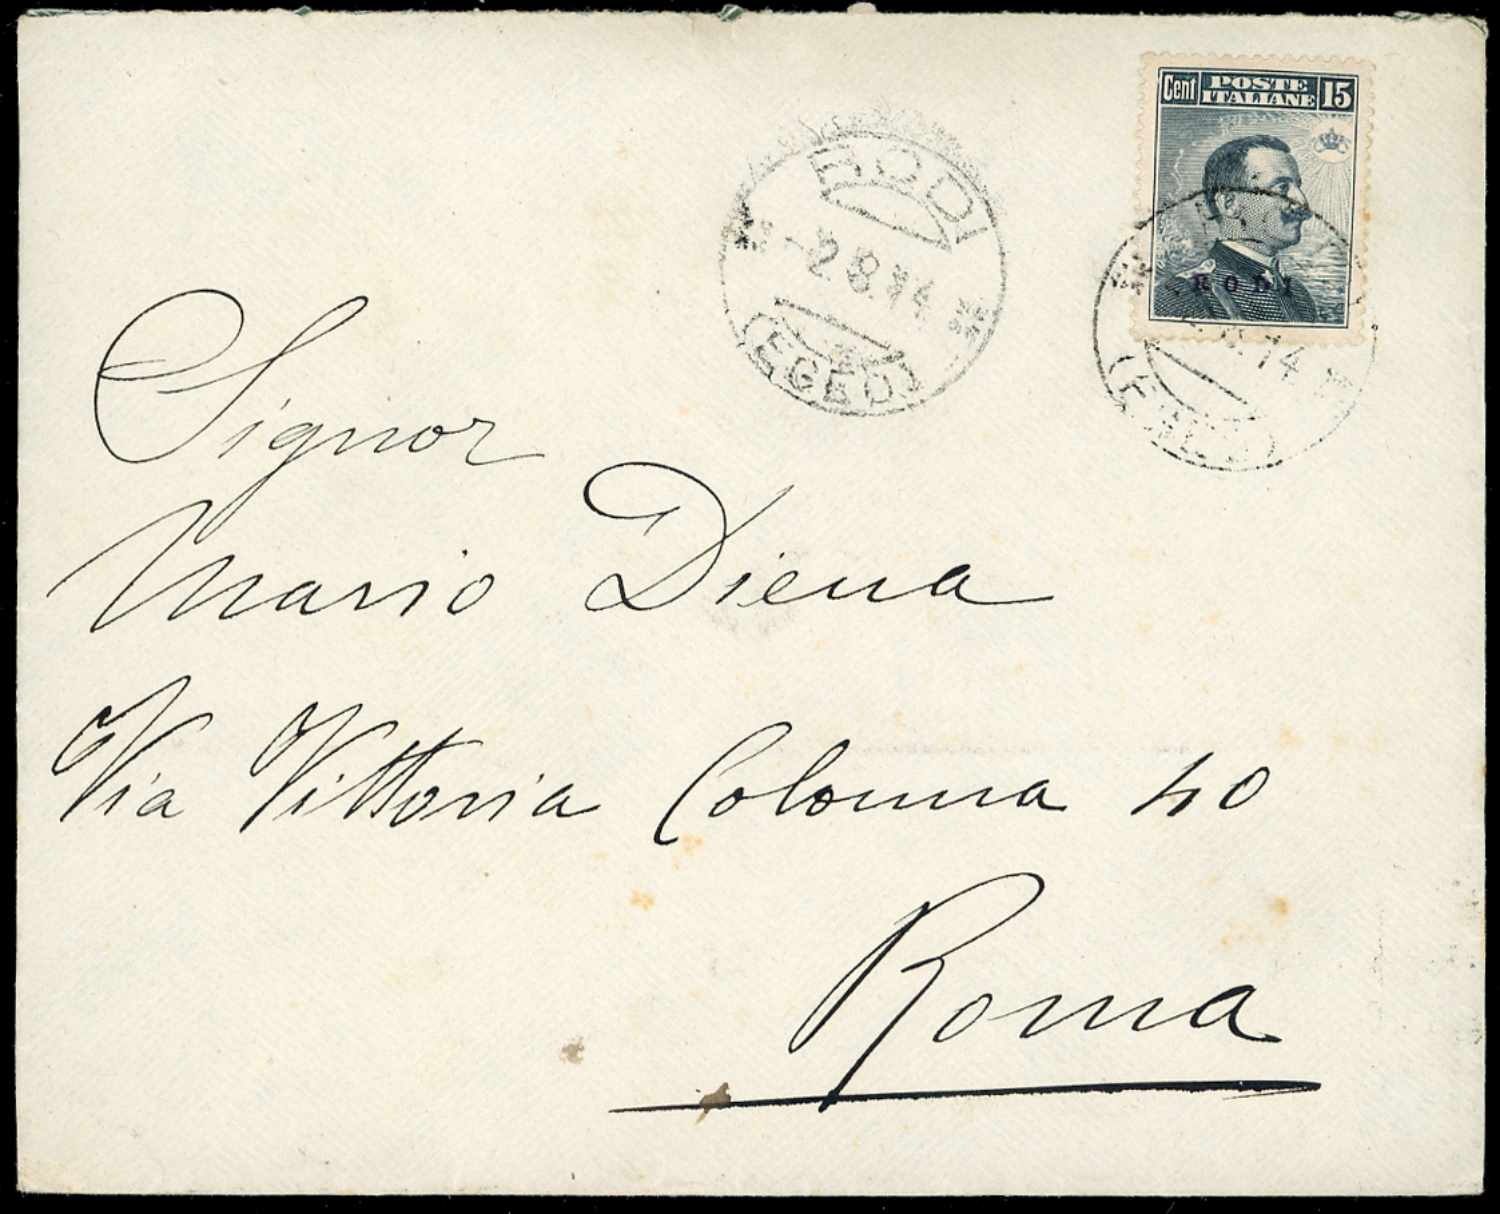 Cent POSTE ITALIANE 15
RODI
RODI
-2.8.14
(EGEO)
14
Signor
Mario Diena
Via Vittoria Colonna 40
Roma